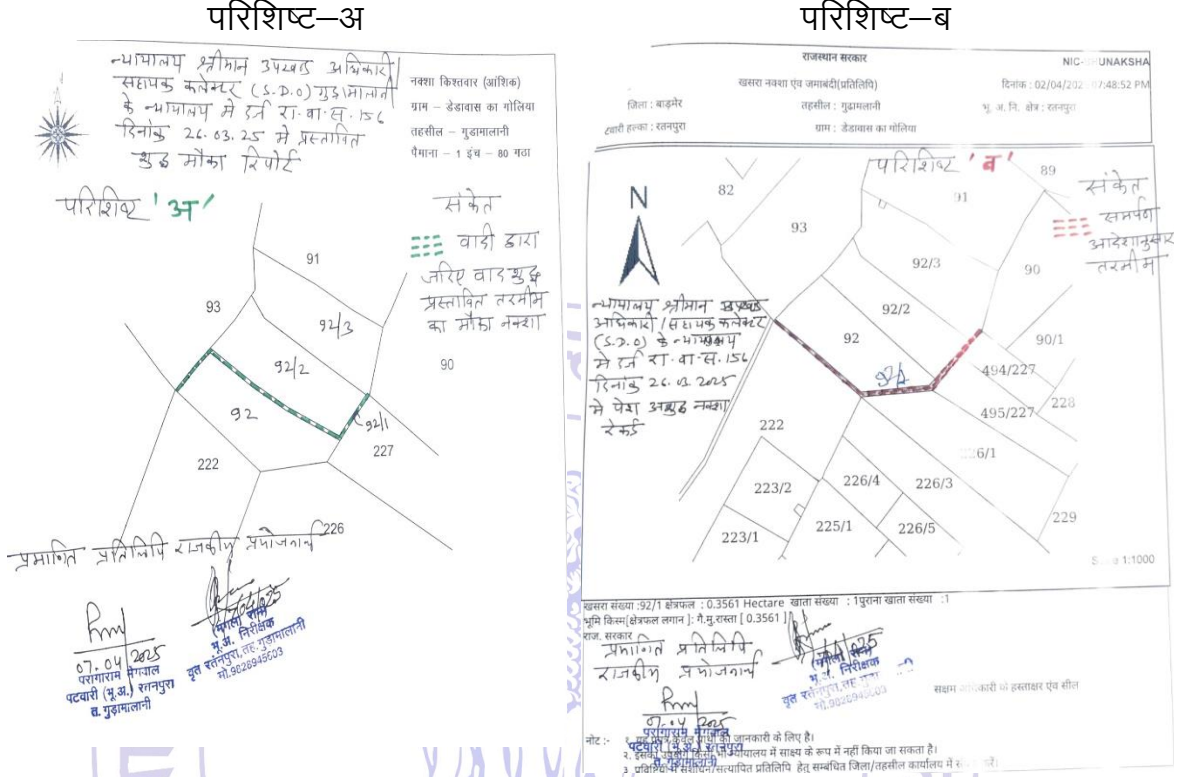 परिशिष्ट–अ
न्यायालय श्रीमान उपखंड अधिकारी
सहायक कलेक्टर (S.D.O) गुड़ामालानी
के न्यायालय मे दर्ज रा.वा.स. 156
दिनांक 26.03.25 मे प्रस्तावित
शुद्ध मौका रिपोर्ट
नक्शा किश्तवार (आंशिक)
ग्राम – डेडावास का गोलिया
तहसील – गुडामालानी
पैमाना – 1 इंच – 80 गठा
परिशिष्ट 'अ'
संकेत
वादी द्वारा
जरिए वाद शुद्ध
प्रस्तावित तरमीम
का मौका नक्शा
91
93
92/3
92/2
90
92
92/1
227
222
226
प्रमाणित प्रतिलिपि राजकीय प्रयोजनार्थ
07.04.2025
परागाराम मेगवाल
पटवारी (भू.अ.) रतनपुरा
त. गुड़ामालानी
भू.अ. निरीक्षक
वृत रतनपुरा, तह. गुड़ामालानी
परिशिष्ट–ब
राजस्थान सरकार
खसरा नक्शा एंव जमाबंदी(प्रतिलिपि)
जिला : बाड़मेर
तहसील : गुढामलानी
भू. अ. नि. क्षेत्र : रतनपुरा
हल्का : रतनपुरा
ग्राम : डेडावास का गोलिया
07:48:52 PM
परिशिष्ट 'ब'
संकेत
समर्पण
आदेशानुसार
तरमीम
N
न्यायालय श्रीमान उपखंड
अधिकारी/सहायक कलेक्टर
(S.D.O) के न्यायालय
मे दर्ज रा.वा.स. 156
दिनांक 26.03.2025
मे पेश अशुद्ध नक्शा
रेकर्ड
82
89
91
93
92/3
90
92/2
92
90/1
92/1
494/227
228
495/227
222
226/4
226/3
223/2
229
225/1
226/5
223/1
1:1000
खसरा संख्या :92/1 क्षेत्रफल : 0.3561 Hectare खाता संख्या : 1पुराना खाता संख्या :1
भूमि किस्म[क्षेत्रफल लगान ]: गै.मु.रास्ता [ 0.3561 ]
राज. सरकार
प्रमाणित प्रतिलिपि
राजकीय प्रयोजनार्थ
07.04.2025
परागाराम मेगवाल
पटवारी (भू.अ.) रतनपुरा
त. गुड़ामालानी
भू.अ. निरीक्षक
सक्षम अधिकारी के हस्ताक्षर एंव सील
नोट :- १. यह प्रपत्र केवल प्रार्थी की जानकारी के लिए है।
२. इसका उपयोग किसी भी न्यायालय में साक्ष्य के रूप में नहीं किया जा सकता है।
३. सत्यापित प्रतिलिपि हेतु सम्बंधित जिला/तहसील कार्यालय में